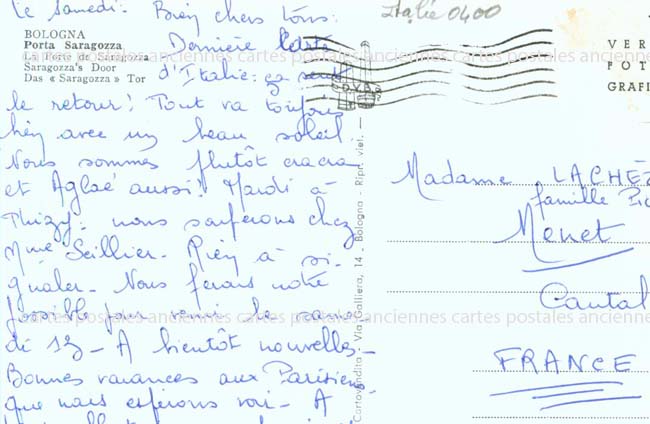 le Samedi. Bien chers tous.
BOLOGNA
Porta Saragozza
La Porte de Saragozza
Saragozza's Door
Das « Saragozza » Tor
Dernière
d'Italie: ça sent
le retour! Tout va toujours
bien avec un beau soleil.
Nous sommes plutôt cracra
et Aglaé aussi! Mardi à
Thizy: nous souperons chez
Mme Seillier. Rien à si-
gnaler. Nous ferons notre
possible pour venir le same-
di 13 - A bientôt nouvelles -
Bonnes vacances aux Parisiens
que nous espérons voir - A
Italie 0400
VER
FOT
GRAFI
Cartovendita - Via Galliera, 14 - Bologna - Ripr. viet. -
Madame LACHÈZ
famille
Menet
Cantal
FRANCE
cartes postales anciennes cartes postales anciennes cartes postales anciennes
cartes postales anciennes cartes postales anciennes cartes postales anciennes